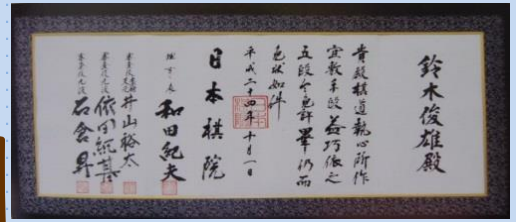 鈴木俊雄殿
貴殿棋道執心所作
宜敷手段益巧依之
五段令免許畢仍而
免状如件
平成二十四年十月一日
日本棋院
理事長 和田紀夫
審査役 井山裕太
審査役九段 依田紀基
審査役九段 石倉昇